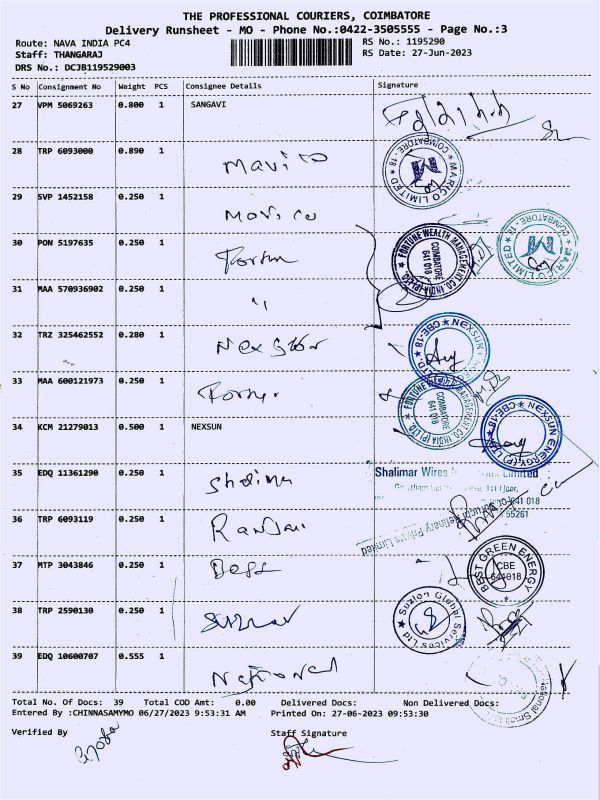 THE PROFESSIONAL COURIERS, COIMBATORE
Delivery Runsheet - MO - Phone No.:0422-3505555 - Page No.:3
Route: NAVA INDIA PC4 RS No.: 1195290
Staff: THANGARAJ RS Date: 27-Jun-2023
DRS No.: DCJB119529003
S No Consignment No Weight PCS Consignee Details Signature
27 VPM 5069263 0.800 1 SANGAVI
28 TRP 6093000 0.890 1 Marico
MARICO LIMITED COIMBATORE - 18
29 SVP 1452158 0.250 1 Marico
MARICO LIMITED COIMBATORE - 18
30 PON 5197635 0.250 1 Fortun
FORTUNE WEALTH MANAGEMENT CO. INDIA (P) LTD.
COIMBATORE
641 018
31 MAA 570936902 0.250 1 "
32 TRZ 325462552 0.280 1
NEXSUN CBE-18
33 MAA 600121973 0.250 1
FORTUNE WEALTH MANAGEMENT CO INDIA (P) LTD.
COIMBATORE
641 018
34 KCM 21279013 0.500 1 NEXSUN
NEXSUN ENERGY (P) LTD. CBE-18
35 EDQ 11361290 0.250 1 Shalima
Shalimar Wires Limited
1st Floor,
641 018
55261
36 TRP 6093119 0.250 1
Refinery Private Limited
37 MTP 3043846 0.250 1 Best
BEST GREEN ENERGY
CBE
641018
38 TRP 2590130 0.250 1
Suzlon Global Services Ltd
39 EDQ 10600707 0.555 1 National
National Small
Total No. Of Docs: 39 Total COD Amt: 0.00 Delivered Docs: Non Delivered Docs:
Entered By :CHINNASAMYMO 06/27/2023 9:53:31 AM Printed On: 27-06-2023 09:53:30
Verified By Staff Signature